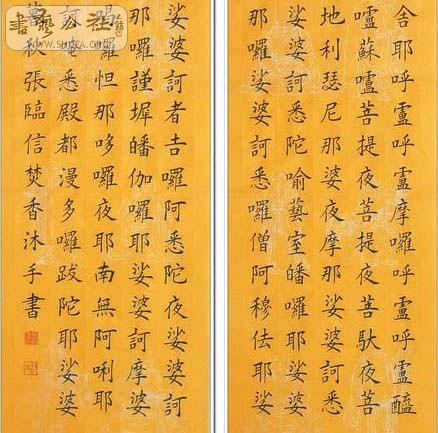 舍耶呼盧呼盧摩囉呼盧呼盧醯
嚧蘇嚧菩提夜菩提夜菩馱夜菩
地利瑟尼那婆夜摩那娑婆訶悉
娑婆訶悉陀喻藝室皤囉耶娑婆
那囉娑婆訶悉囉僧阿穆佉耶娑
娑婆訶者吉囉阿悉陀夜娑婆訶
那囉謹墀皤伽囉耶娑婆訶摩婆
囉怛那哆囉夜耶南無阿唎耶
訶唵悉殿都漫多囉跋陀耶娑婆
暮秋張臨信焚香沐手書
書藝公社